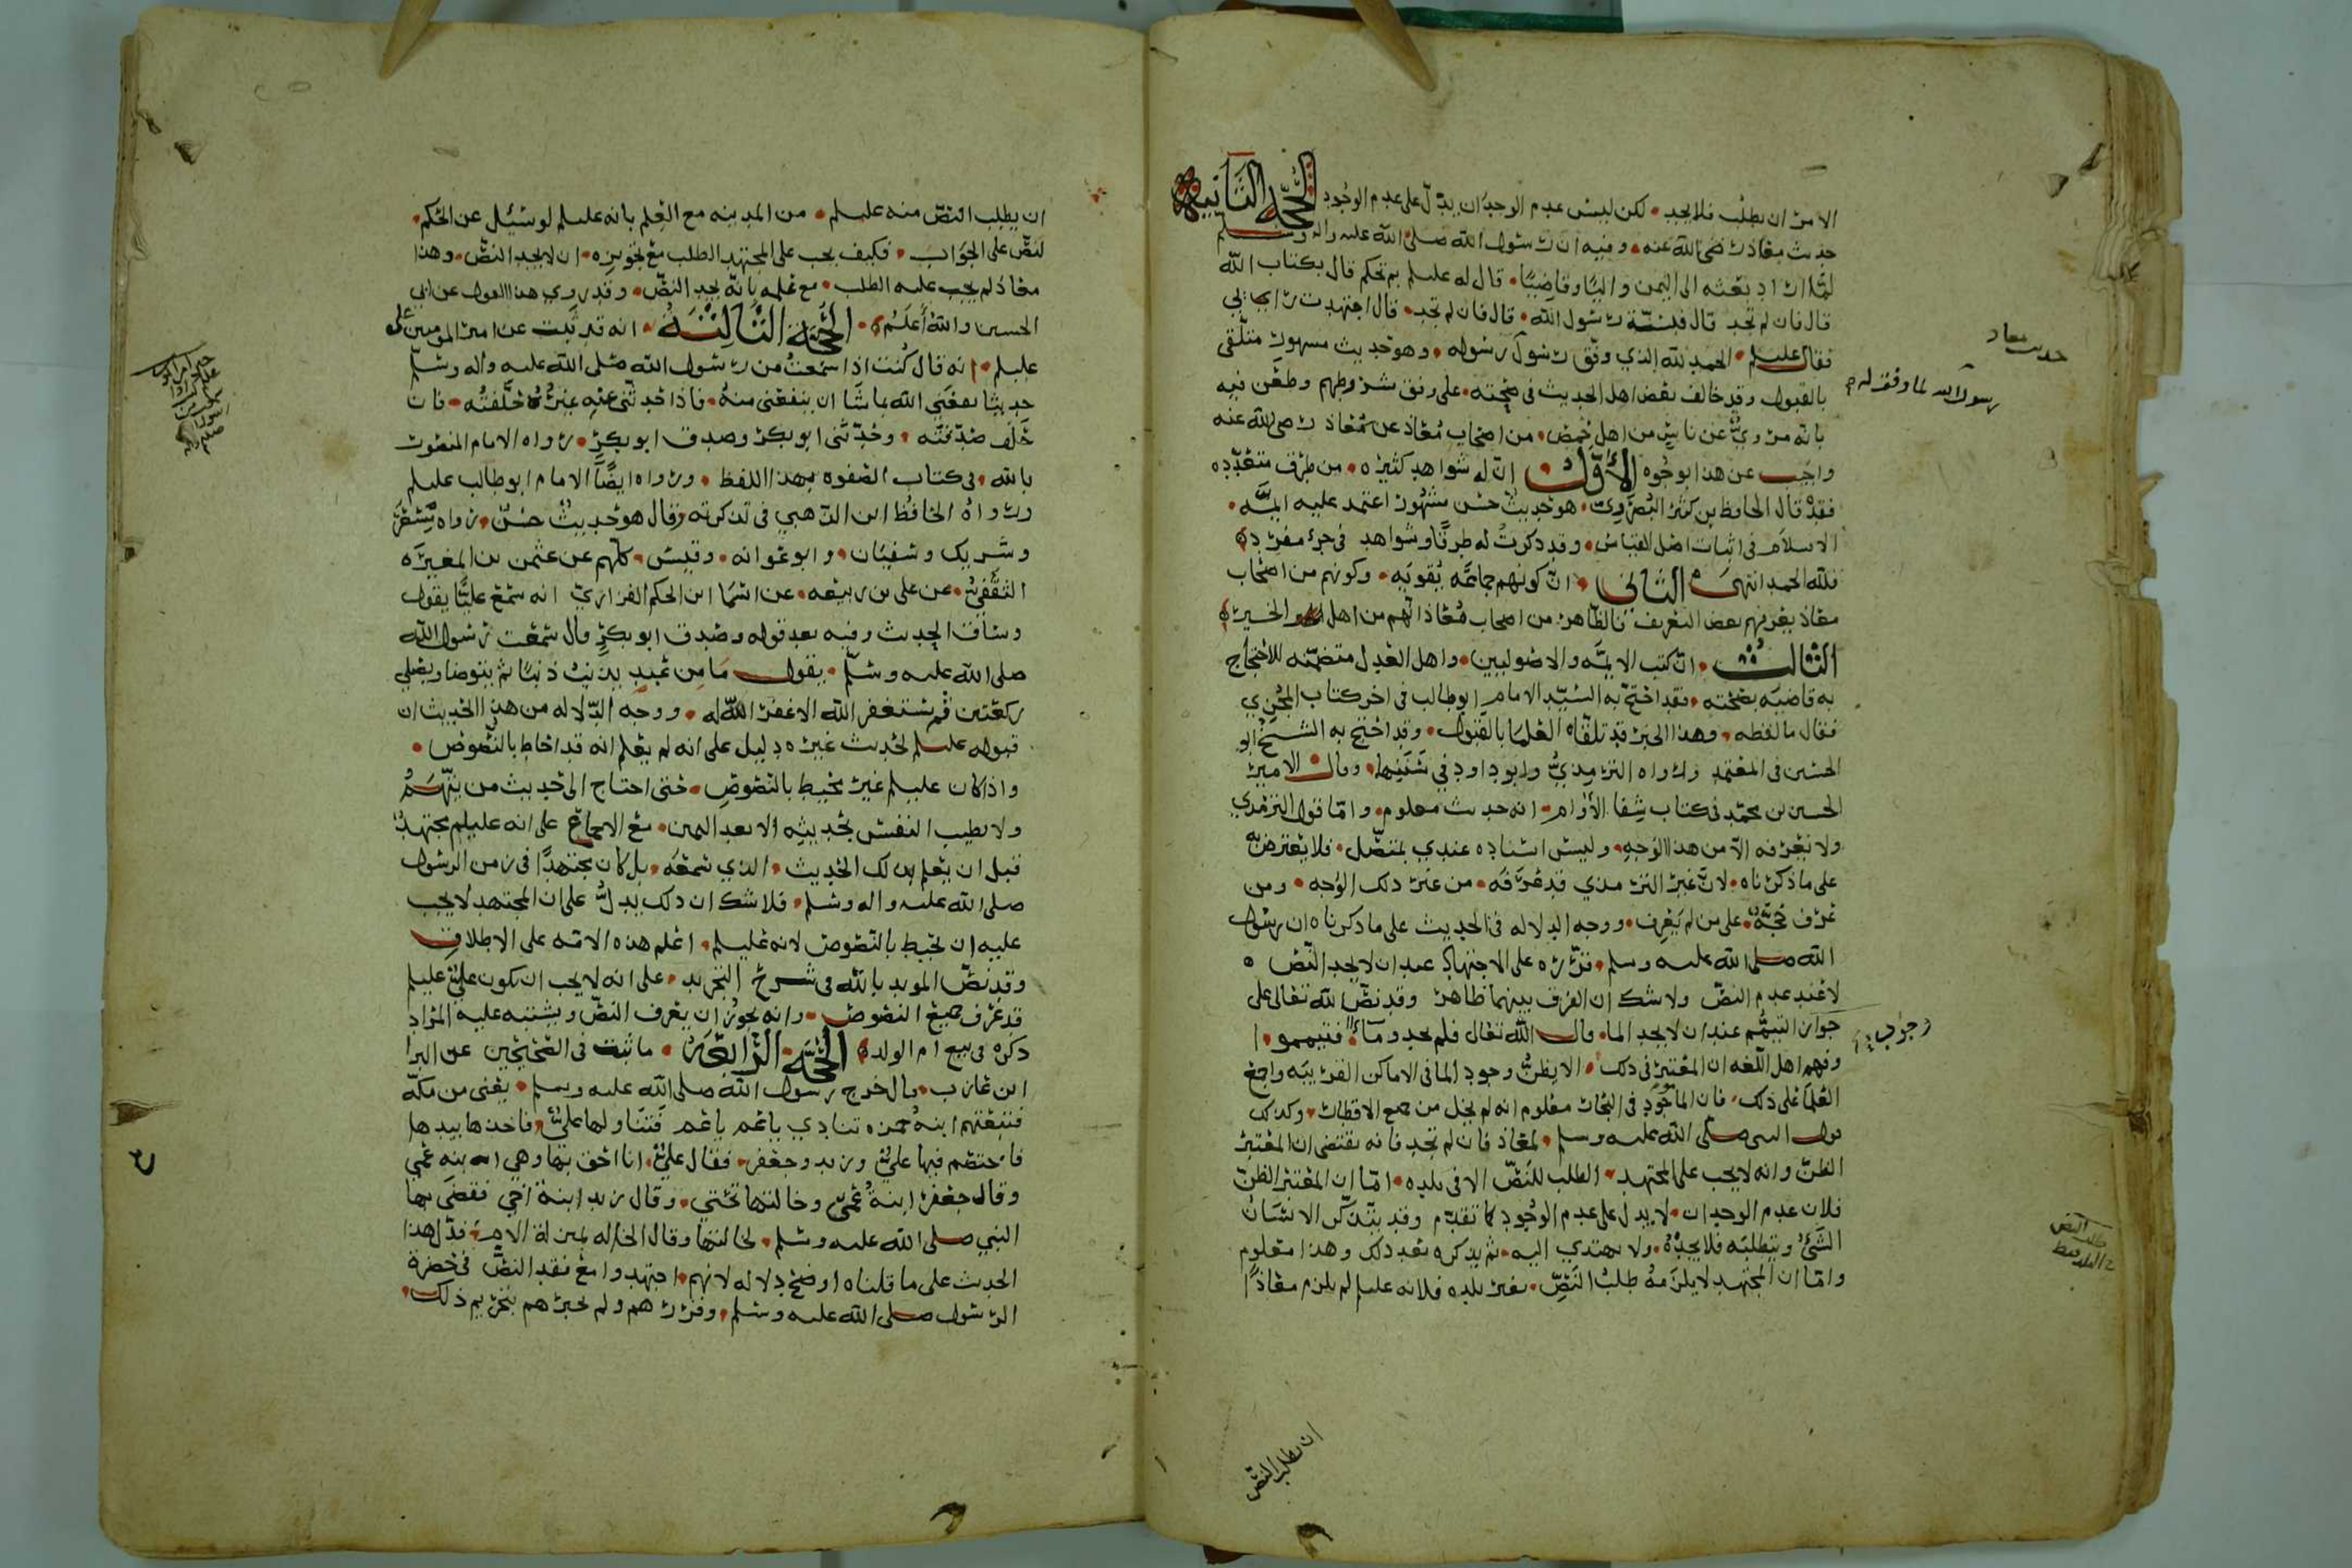 الامر ان يطلب فلا يجد لكن ليس عدم الوجدان يدل على عدم الوجود الحجه الثانيه
حديث معاذ رضي الله عنه وفيه ان رسول الله صلى الله عليه واله وسلم
لما اراد بعثه الى اليمن واليا وقاضيا قال له عليلم بم تحكم قال بكتاب الله
قال فان لم تجد قال فبسنة رسول الله قال فان لم تجد قال اجتهدت رايي
فقال عليلم الحمد لله الذي وفق رسول رسوله وهو حديث مشهور متلقى
بالقبول وقد خالف بعض اهل الحديث في صحته على رفق شروطهم وطعن فيه
بانه مروي عن ناس من اهل حمص من اصحاب معاذ عن معاذ رضي الله عنه
واجب عن هذا بوجوه الاول ان له شواهد كثيره من طرق متعدده
فقد قال الحافظ بن كثير البصروي هو حديث حسن مشهور اعتمد عليه ايمه
الاسلام في اثبات اصل القياس وقد ذكرت له طرقا وشواهد في جزء مفرد
فلله الحمد انتهى الثاني ان كونهم جماعه يقويه وكونهم من اصحاب
معاذ يعرفهم بعض التعريف فالظاهر من اصحاب معاذ انهم من اهل الخير
الثالث ان كتب الايمه والاصوليين واهل العدل متضمنه للاحتجاج
به قاضيه بصحته فقد احتج به السيد الامام ابو طالب في اخر كتاب المجزي
فقال ما لفظه وهذا الخبر قد تلقاه العلما بالقبول وقد احتج به الشيخ ابو
الحسين في المعتمد ورواه الترمذي وابو داود في سننهما وقال الامير
الحسين بن محمد في كتاب شفا الاوام انه حديث معلوم واما قول الترمذي
ولا نعرفه الا من هذا الوجه وليس اسناده عندي بمتصل فلا يعترض به
على ما ذكرناه لان غير الترمذي قد عرفه من غير ذلك الوجه ومن
عرف حجة على من لم يعرف ووجه الدلاله في الحديث على ما ذكرناه ان رسول
الله صلى الله عليه وسلم قرره على الاجتهاد عند ان لا يجد النص
لا عند عدم النص ولا شك ان الفرق بينهما ظاهر وقد نص الله تعالى على
جواز التيمم عند ان لا يجد الما قال الله تعالى فلم تجدوا مآء فتيمموا
وفهم اهل اللغه ان المعتبر في ذلك الا يظن وجود الما في الاماكن القريبه واجمع
العلما على ذلك فان الما موجود في البحار معلوم انه لم يخل من جميع الاقطار وكذلك
قول النبي صلى الله عليه وسلم لمعاذ فان لم تجد فانه يقتضي ان المعتبر
الظن وانه لا يجب على المجتهد الطلب للنص الا في بلده اما ان المعتبر الظن
فلان عدم الوجدان لا يدل على عدم الوجود كما تقدم وقد يتذكر الانسان
الشيء ويتطلبه فلا يجده ولا يهتدي اليه ثم يذكره بعد ذلك وهذا معلوم
واما ان المجتهد لا يلزمه طلب النص بغير بلده فلانه عليلم لم يلزم معاذا
ان يطلب النص
حديث معاذ
رسول الله لما وفقه له
وجوب
طلب النص
في البلد فقط
ان يطلب النص منه عليلم من المدينه مع العلم بانه عليلم لو سئل عن الحكم
لنص على الجواب فكيف يجب على المجتهد الطلب مع تجويزه ان لا يجد النص وهذا
معاذ لم يجب عليه الطلب مع علمه بانه يجد النص وقد روي هذا القول عن ابي
الحسين والله أعلم الحجة الثالثة انه قد ثبت عن امير المومنين علي
عليلم انه قال كنت اذا سمعت من رسول الله صلى الله عليه واله وسلم
حديثا نفعني الله بما شا ان ينفعني منه فاذا حدثني عنه غيره حلفته فان
حلف صدقته وحدثني ابو بكر وصدق ابو بكر رواه الامام المنصور
بالله في كتاب الصفوه بهذا اللفظ ورواه ايضا الامام ابو طالب عليلم
ورواه الحافظ ابن الذهبي في تذكرته وقال هو حديث حسن رواه مسعر
وشريك وسفيان وابو عوانه وقيس كلهم عن عثمن بن المغيره
الثقفي عن علي بن ربيعه عن اسما ابن الحكم الفزاري انه سمع عليا يقول
وساق الحديث وفيه بعد قوله وصدق ابو بكر قال سمعت رسول الله
صلى الله عليه وسلم يقول ما من عبد يذنب ذنبا ثم يتوضا ويصلي
ركعتين ثم يستغفر الله الا غفر الله له ووجه الدلاله من هذا الحديث ان
قبوله عليلم لحديث غيره دليل على انه لم يعلم انه قد احاط بالنصوص
واذا كان عليلم غير محيط بالنصوص حتى احتاج الى حديث من يتهمه
ولا تطيب النفس بحديثه الا بعد اليمين مع الاجماع على انه عليلم مجتهد
قبل ان يعلم بذلك الحديث الذي سمعه بل كان مجتهدا في زمن الرسول
صلى الله عليه واله وسلم فلا شك ان ذلك يدل على ان المجتهد لا يجب
عليه ان يحيط بالنصوص لانه عليلم اعلم هذه الامه على الاطلاق
وقد نص المويد بالله في شرح التجريد على انه لا يجب ان يكون علي عليلم
قد عرف جميع النصوص وانه يجوز ان يعرف النص ويشتبه عليه المراد
ذكره في بيع ام الولد الحجة الرابعة ما ثبت في الصحيحين عن البرا
ابن عازب قال خرج رسول الله صلى الله عليه وسلم يعني من مكة
فتبعتهم ابنة حمزه تنادي يا عم يا عم فتناولها علي فاخذها بيدها
فاختصم فيها علي وزيد وجعفر فقال علي انا احق بها وهي ابنه عمي
وقال جعفر ابنة عمي وخالتها تحتي وقال زيد ابنة اخي فقضى بها
النبي صلى الله عليه وسلم لخالتها وقال الخاله بمنزلة الام فدل هذا
الحديث على ما قلناه اوضح دلاله لانهم اجتهدوا مع فقد النص في حضرة
الرسول صلى الله عليه وسلم وقررهم ولم يخبرهم بتحريم ذلك